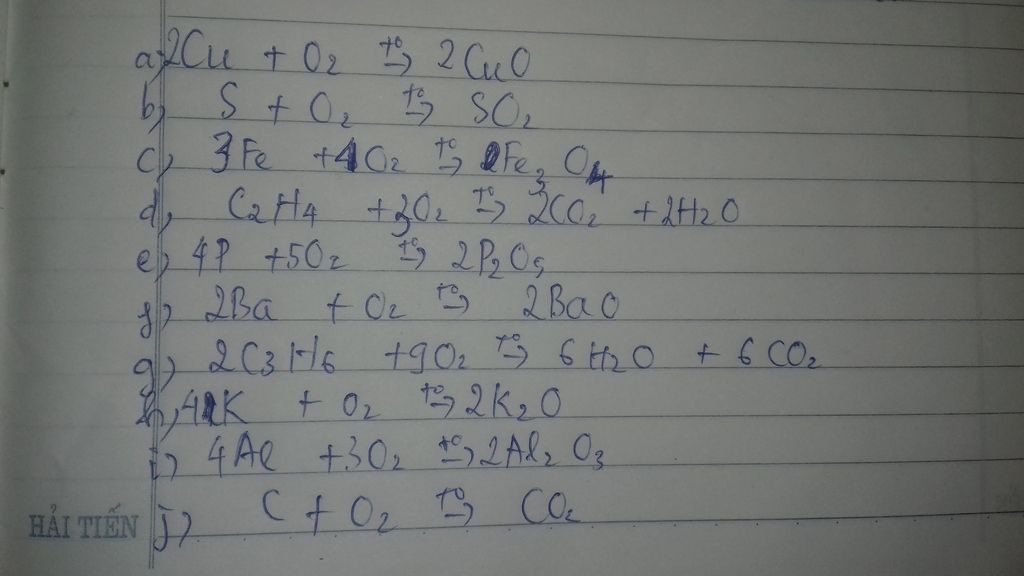 a) 2Cu + O2 t°→ 2CuO
b) S + O2 t°→ SO2
c) 3Fe + O2 t°→ Fe3O4
d) C2H4 + 3O2 t°→ 2CO2 + 2H2O
e) 4P + 5O2 t°→ 2P2O5
f) 2Ba + O2 t°→ 2BaO
g) 2C3H6 + 9O2 t°→ 6H2O + 6CO2
h) 4K + O2 t°→ 2K2O
i) 4Al + 3O2 t°→ 2Al2O3
j) C + O2 t°→ CO2
HẢI TIẾN